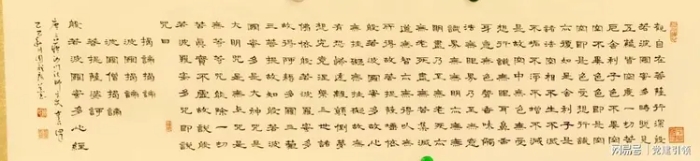 觀自在菩薩行深般
若波羅蜜多時照見
五蘊皆空度一切苦
厄舍利子色不異空
空不異色色即是空
空即是色受想行識
亦復如是舍利子是
諸法空相不生不滅
不垢不淨不增不減
是故空中無色無受
想行識無眼耳鼻舌
身意無色聲香味觸
法無眼界乃至無意
識界無無明亦無無
明盡乃至無老死亦
無老死盡無苦集滅
道無智亦無得以無
所得故菩提薩埵依
般若波羅蜜多故心
無罣礙無罣礙故無
有恐怖遠離顛倒夢
想究竟涅槃三世諸
佛依般若波羅蜜多
故得阿耨多羅三藐
三菩提故知般若波
羅蜜多是大神咒是
大明咒是無上咒是
無等等咒能除一切
苦真實不虛故說般
若波羅蜜多咒即說
咒曰
揭諦揭諦
波羅揭諦
波羅僧揭諦
菩提薩婆訶
般若波羅蜜多心經
网易号 | 党建引领